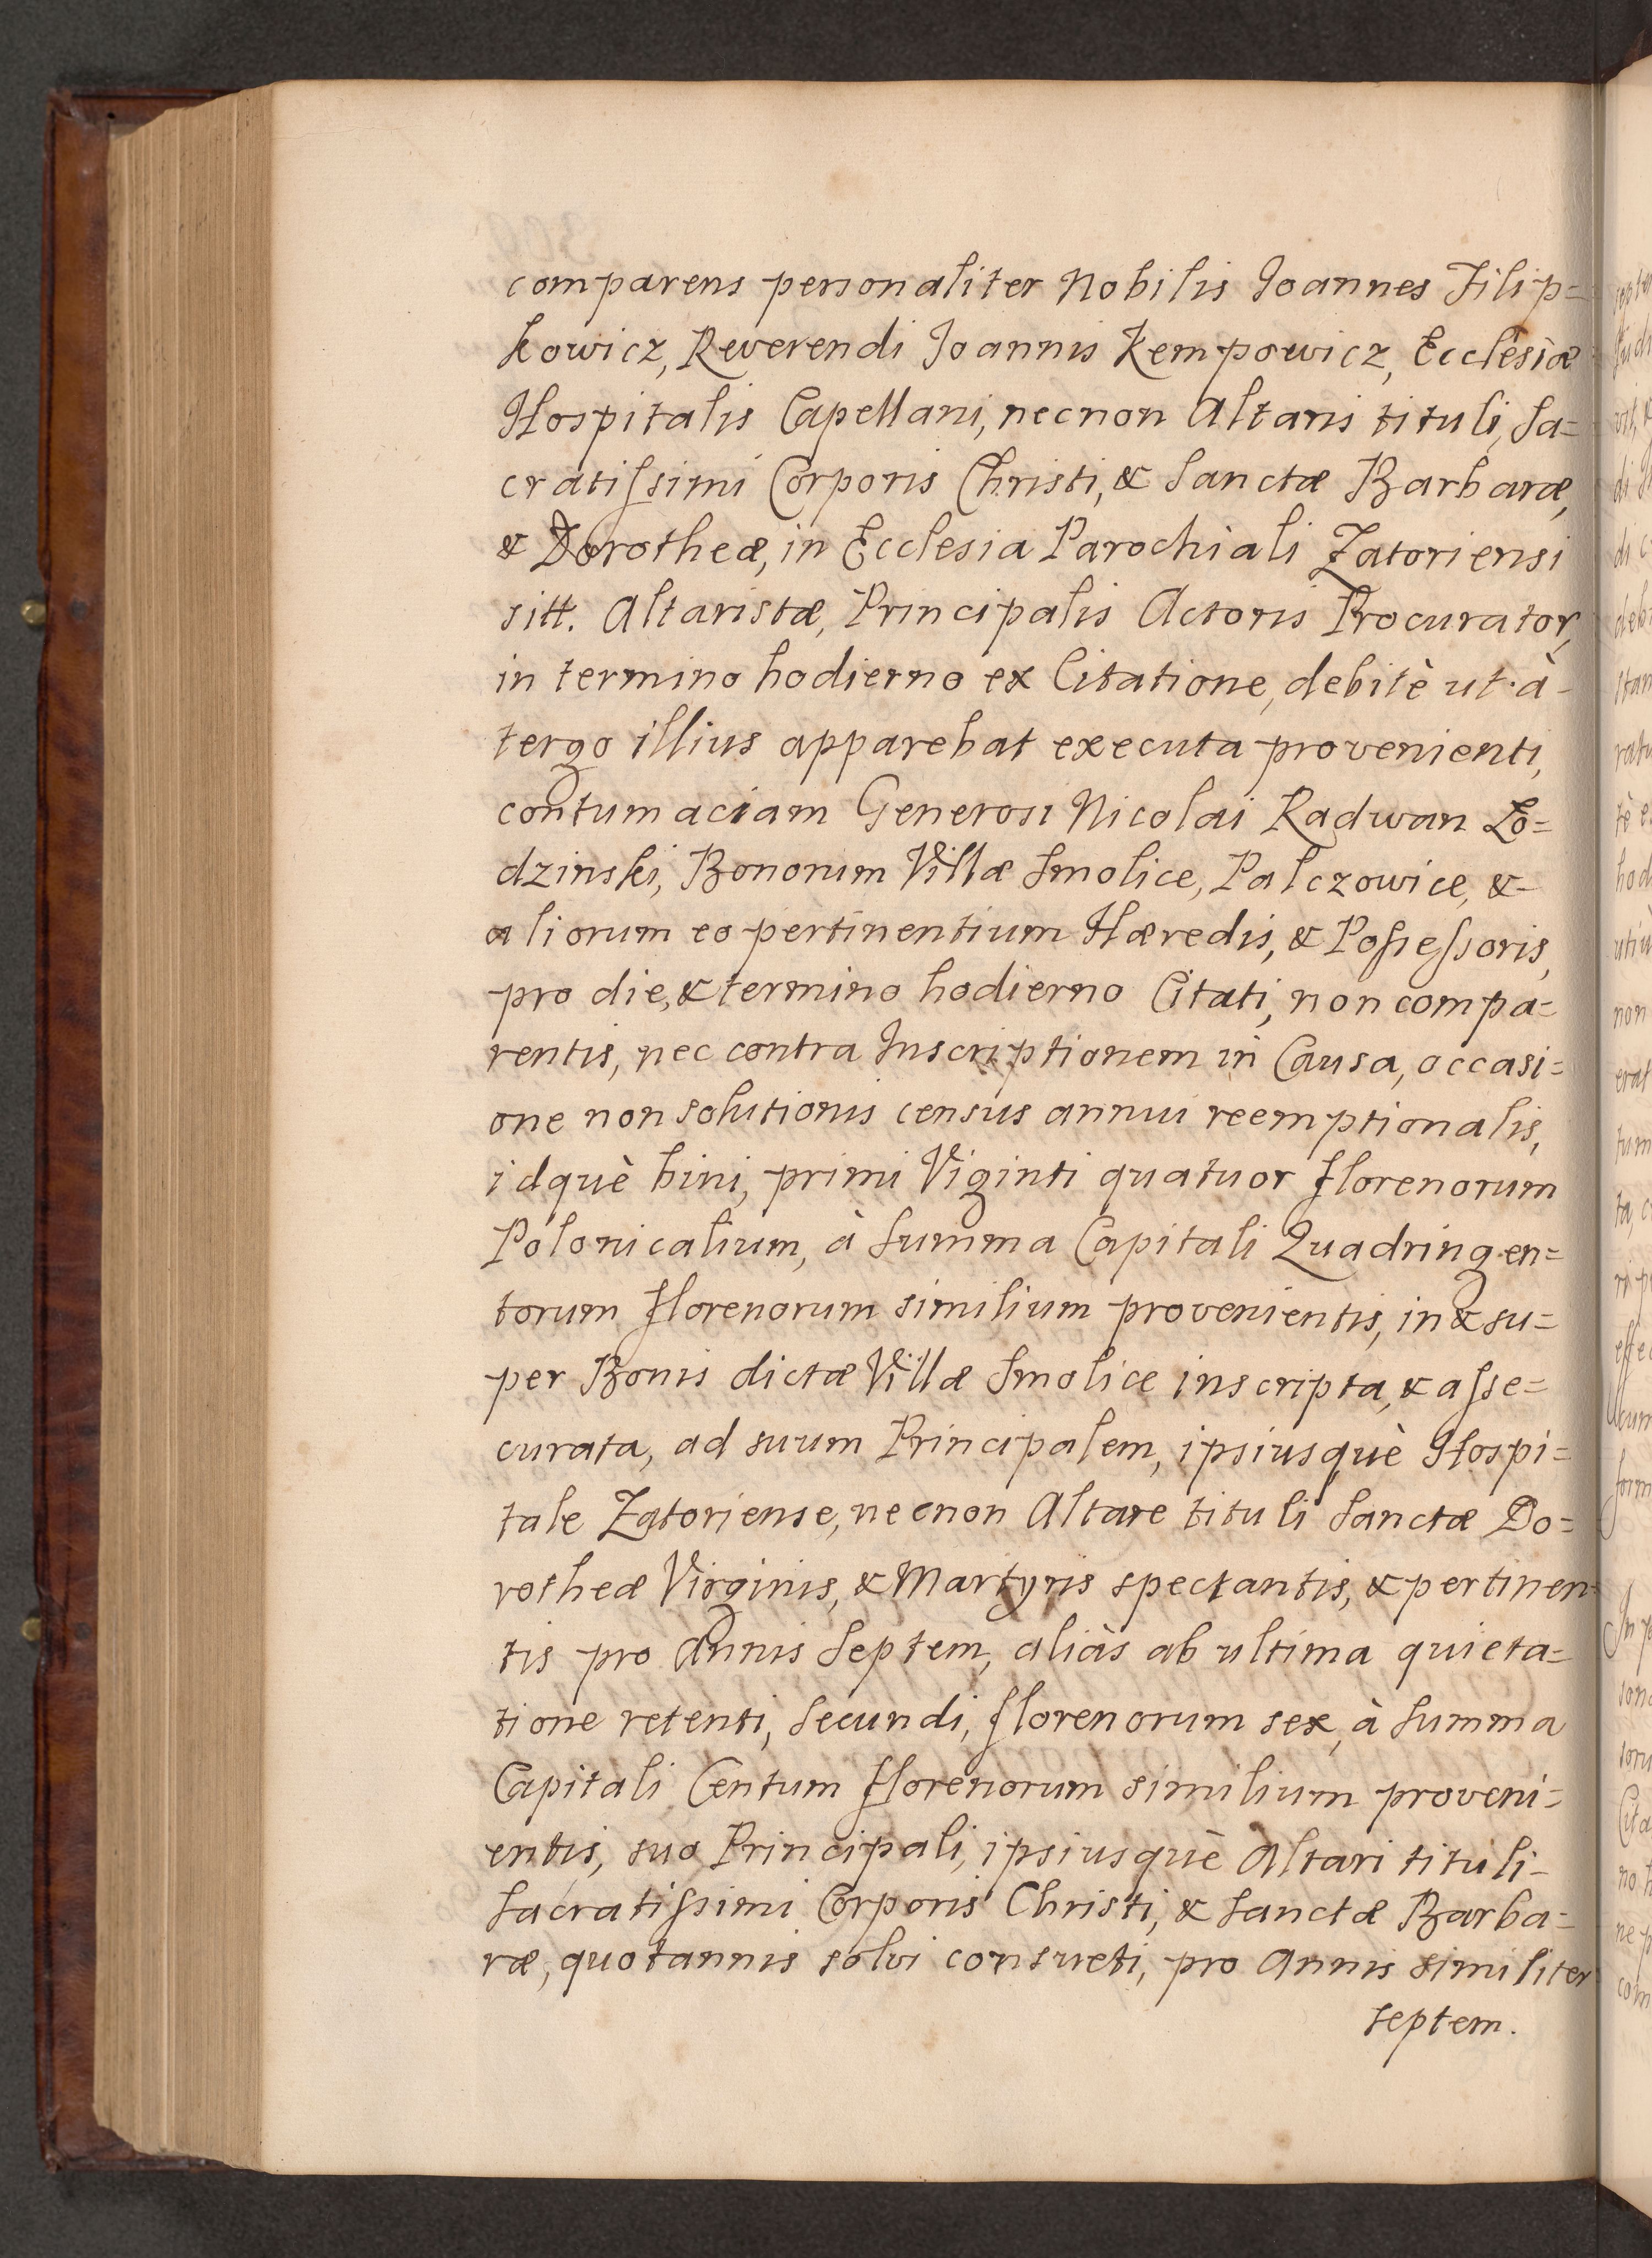 comparens personaliter Nobilis Joannes Filip=
kowicz, Reverendi Joannis Kempowicz, Ecclesiæ
Hospitalis Capellani, necnon Altaris tituli, Sa=
cratiſsimi Corporis Christi, & Sanctæ Barbaræ,
& Dorotheæ, in Ecclesia Parochiali Zatoriensi
sitt. Altaristæ, Principalis Actoris Procurator,
in termino hodierno ex Citatione, debitè ut à-
tergo illius apparebat executa provenienti,
contumaciam Generosi Nicolai Radwan Lo=
dzinski, Bonorum Villæ Smolice, Palczowice, &-
aliorum eo pertinentium Hæredis, & Poſseſsoris,
pro die, & termino hodierno Citati, non compa=
rentis, nec contra Inscriptionem in Causa, occasi=
one non solutionis census annui reemptionalis,
idquè bini, primi Viginti quatuor florenorum
Polonicalium, à Summa Capitali Quadringen=
torum florenorum similium provenientis, in & su=
per Bonis dictæ Villæ Smolice inscripta, & aſse=
curata, ad suum Principalem, ipsiusquè Hospi=
tale Zatoriense, necnon Altare tituli Sanctæ Do=
rotheæ Virginis, & Martyris spectantis, & pertinen=
tis pro Annis Septem, aliàs ab ultima quieta=
tione retenti, Secundi, florenorum sex, à Summa
Capitali Centum florenorum similium proveni=
entis, suo Principali, ipsiusquè Altari tituli-
Sacratiſsimi Corporis Christi, & Sanctæ Barba=
ræ, quotannis solvi consueti, pro Annis similiter
septem.